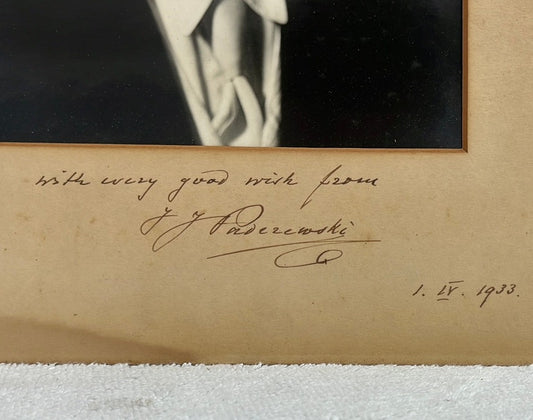 with every good wish from
I J Paderewski
1. IV. 1933.